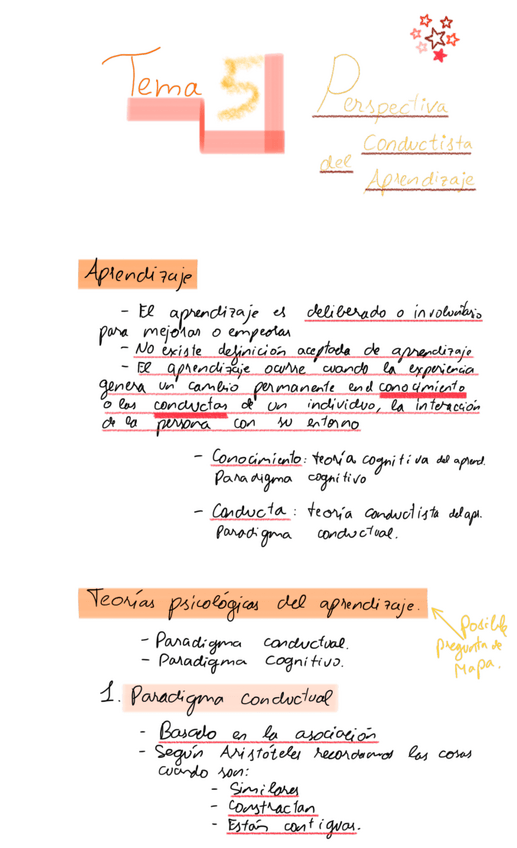 Tema 5
Perspectiva
Conductista
del
Aprendizaje
Aprendizaje
- El aprendizaje es deliberado o involuntario
para mejorar o empeorar
- No existe definición aceptada de aprendizaje
- El aprendizaje ocurre cuando la experiencia
genera un cambio permanente en el conocimiento
o las conductas de un individuo, la interacción
de la persona con su entorno
- Conocimiento: teoría cognitiva del aprend.
Paradigma cognitivo
- Conducta: teoría conductista del apr.
Paradigma conductual.
Teorías psicológicas del aprendizaje.
Posible
pregunta de
Mapa.
- Paradigma conductual.
- Paradigma cognitivo.
1. Paradigma conductual
- Basado en la asociación
- Según Aristóteles recordamos las cosas
cuando son:
- Similares
- Constractan
- Están contiguas.